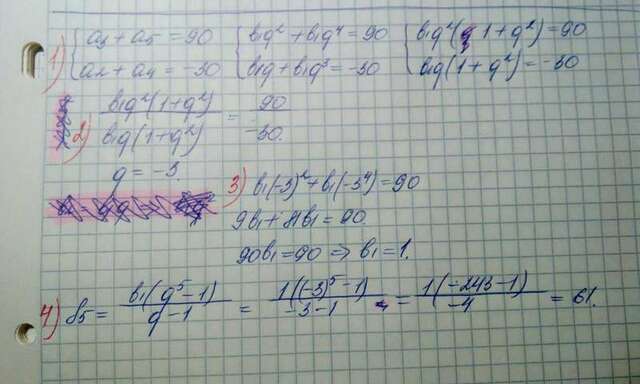 1) { a₃ + a₅ = 90 { b₁q² + b₁q⁴ = 90 { b₁q²(1+q²) = 90
a₂ + a₄ = -30 b₁q + b₁q³ = -30 b₁q(1+q²) = -30
2) b₁q²(1+q²) / b₁q(1+q²) = 90 / -30.
q = -3.
3) b₁(-3)² + b₁(-3⁴) = 90
9b₁ + 81b₁ = 90
90b₁ = 90 ⇒ b₁ = 1.
4) S₅ = b₁(q⁵-1) / q-1 = 1((-3)⁵-1) / -3-1 = 1(-243-1) / -4 = 61.